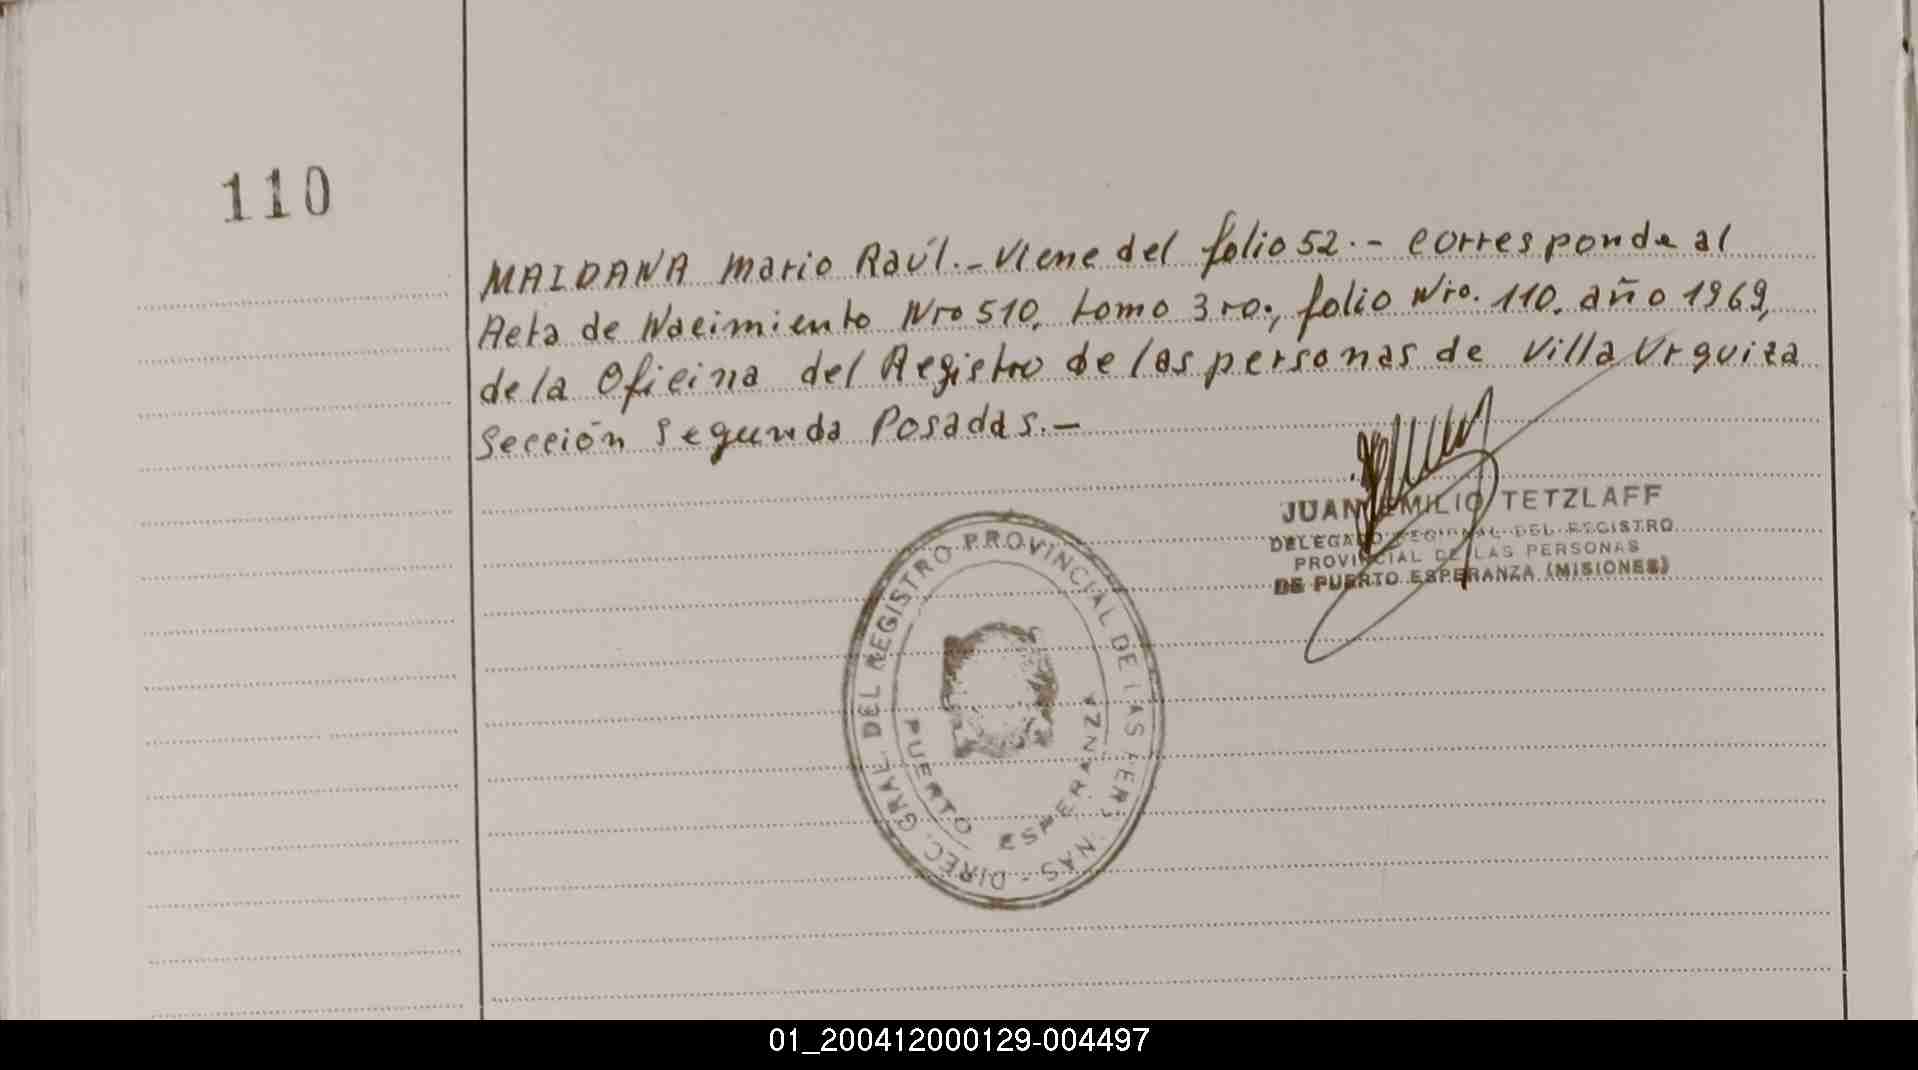 110
MAIDANA Mario Raúl.- Viene del folio 52.- Corresponde al
Acta de Nacimiento Nro 510, tomo 3ro., folio Nro. 110, año 1969,
de la Oficina del Registro de las personas de Villa Urquiza
Sección Segunda Posadas.-
JUAN EMILIO TETZLAFF
DELEGADO REGIONAL DEL REGISTRO
PROVINCIAL DE LAS PERSONAS
DE PUERTO ESPERANZA (MISIONES)
DIREC. GRAL. DEL REGISTRO PROVINCIAL DE LAS PERSONAS -
PUERTO ESPERANZA
01_200412000129-004497